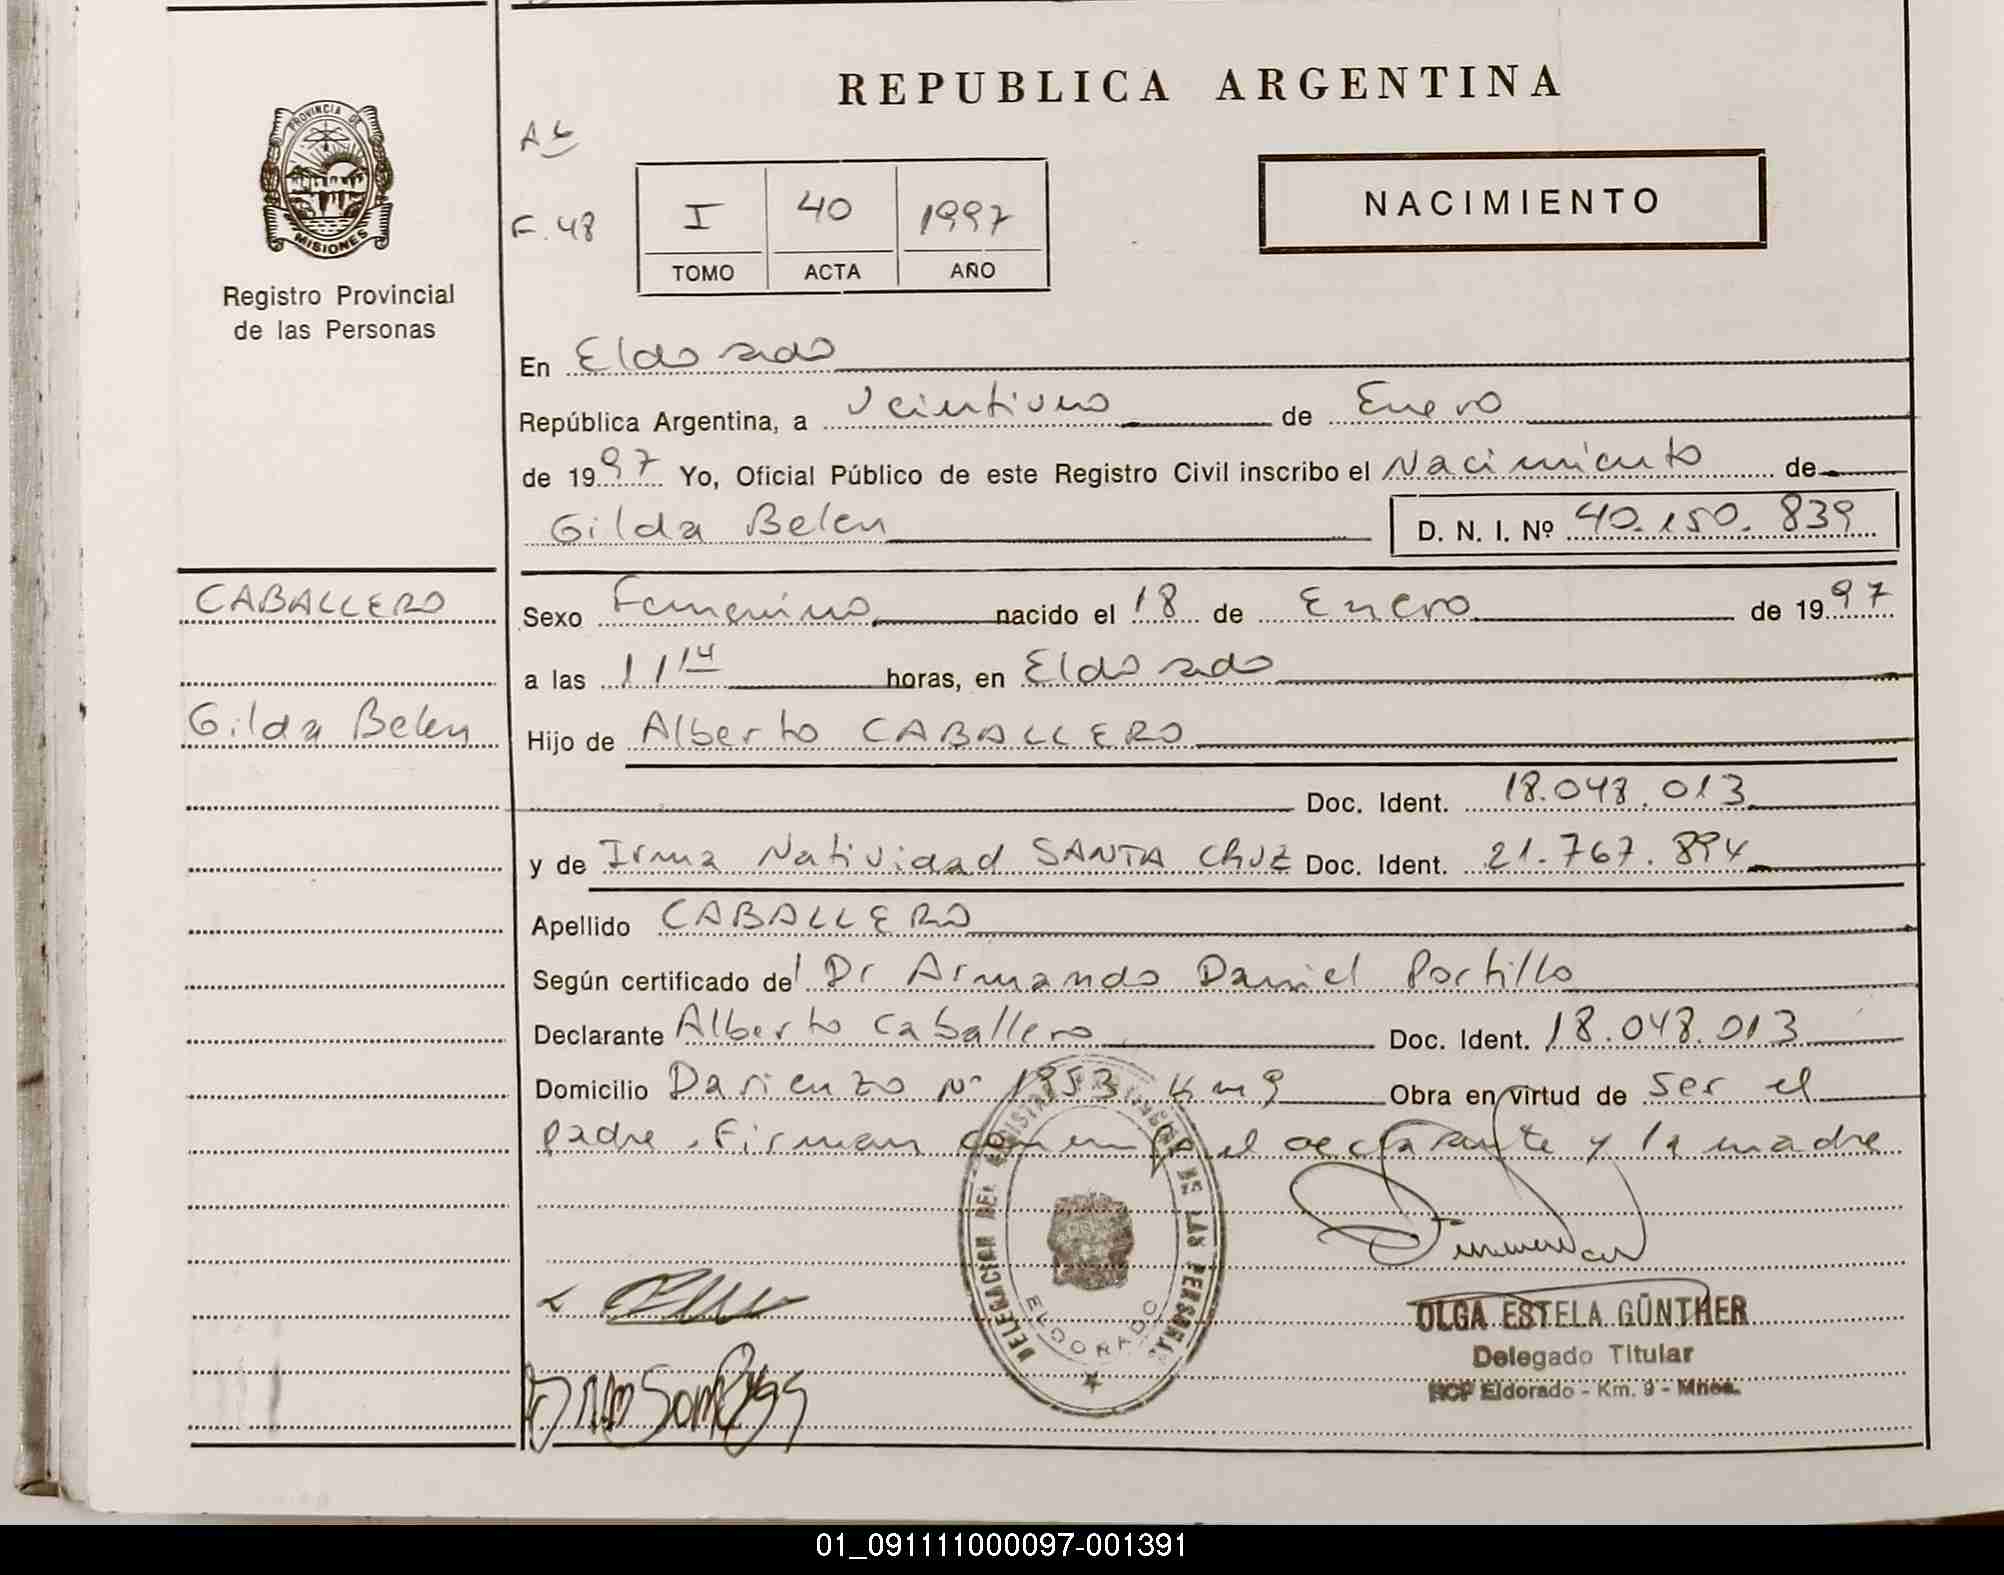 REPUBLICA ARGENTINA
PROVINCIA DE
MISIONES
Registro Provincial
de las Personas
F. 48
I 40 1997
TOMO ACTA AÑO
NACIMIENTO
En Eldorado
República Argentina, a Veintiuno de Enero
de 1997 Yo, Oficial Público de este Registro Civil inscribo el Nacimiento de
Gilda Belen D. N. I. Nº 40.150.839
CABALLERO
Gilda Belen
Sexo Femenino nacido el 18 de Enero de 1997
a las 11 14 horas, en Eldorado
Hijo de Alberto CABALLERO
Doc. Ident. 18.048.013
y de Irma Natividad SANTA CRUZ Doc. Ident. 21.767.894
Apellido CABALLERO
Según certificado del Dr Armando Daniel Portillo
Declarante Alberto Caballero Doc. Ident. 18.048.013
Domicilio Darienzo Nº 1953 Km 9 Obra en virtud de ser el
padre. Firman el declarante y la madre
DELEGACION DEL REGISTRO PROVINCIAL DE LAS PERSONAS
ELDORADO
OLGA ESTELA GÜNTHER
Delegado Titular
RCP Eldorado - Km. 9 - Mnes.
01_091111000097-001391